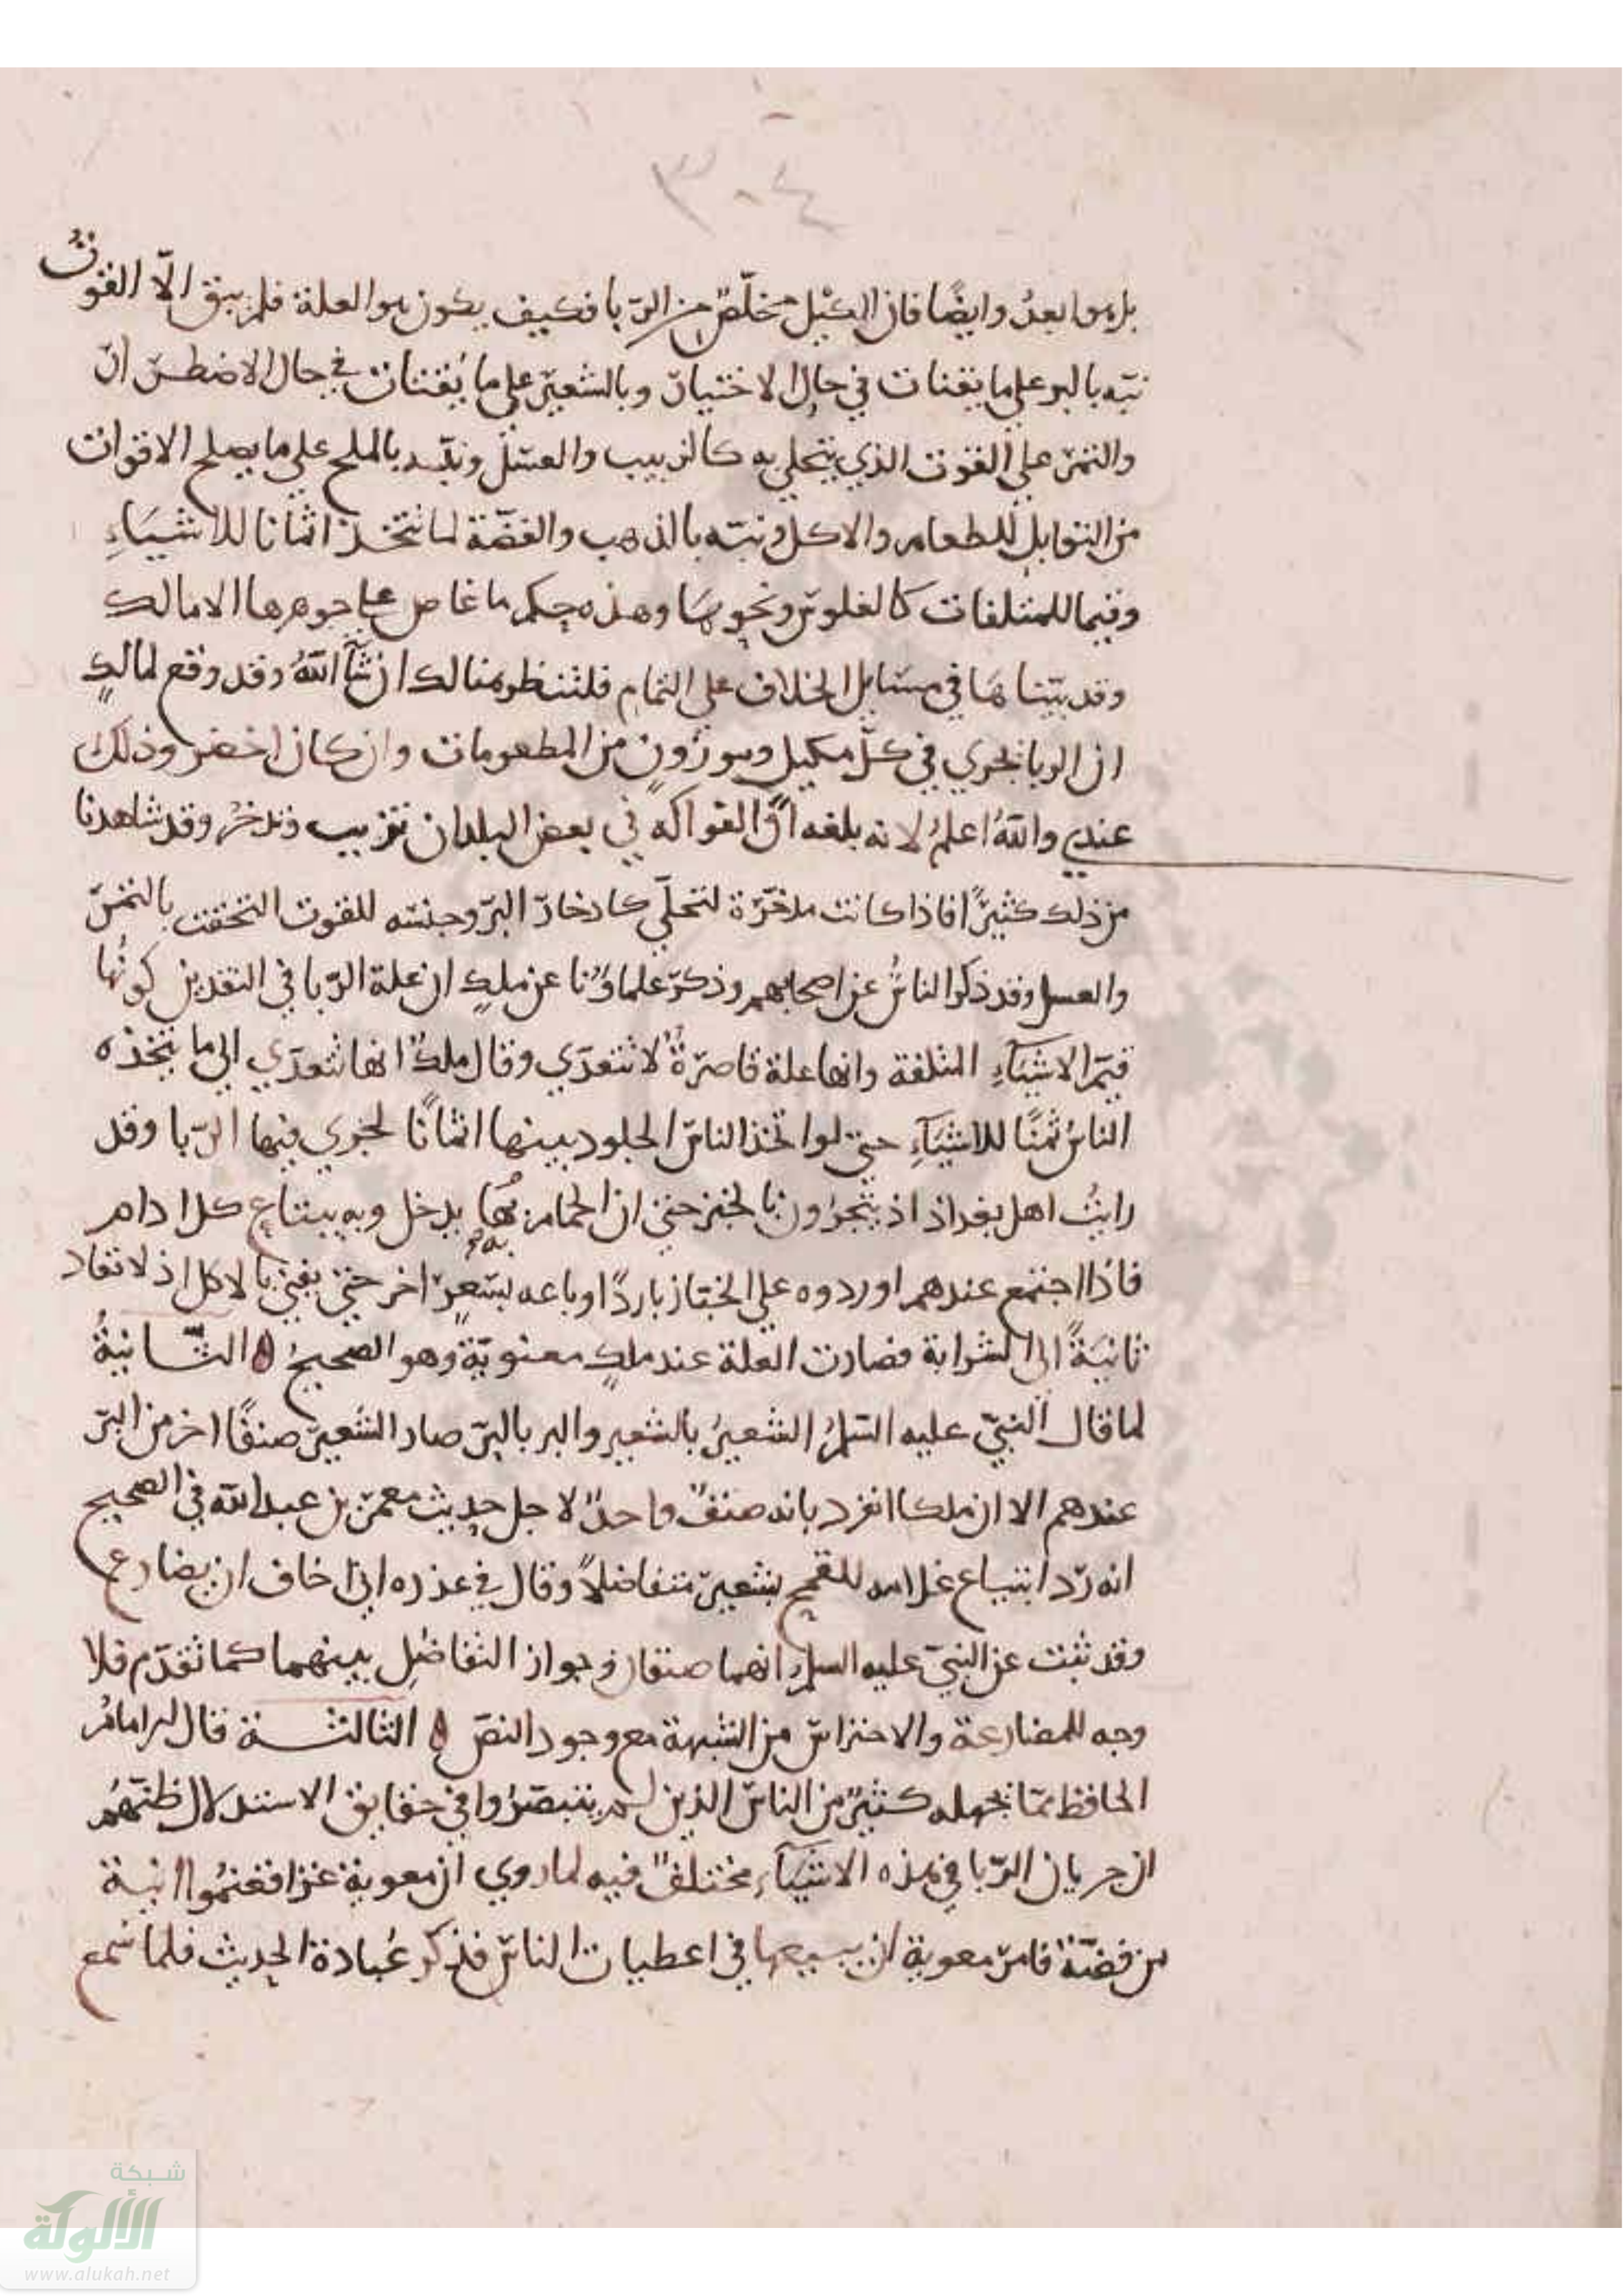 ٣٠٤
بل هو ابعدُ وايضًا فان الكيْل مخلّصٌ من الرّبا فكيف يكون هو العلة فلم يبق الّا القوتُ
نبّه بالبر على ما يقتات في حال الاختيار وبالشعير على ما يُقتات في حال الاضطرار
والتمر على القوت الذي يتحلى به كالزبيب والعسل ونبّه بالملح على ما يصلح الاقوات
من التوابل للطعام والاكل ونبّه بالذهب والفضّة لما تتخذ اثمانا للاشيَاءِ
وقيما للمتلفات كالفلوس ونحوها وهذه حِكم ما غاص على جوهرها الا مالك
وقد بيّناهَا في مسَايل الخلاف على التمام فلتنظر هنالك ان شَآ اللهُ وقد وقع لمالكٍ
ان الربا يجري في كلّ مكيل وموزُونٍ من المطعومات وان كان اخضر وذلك
عندي واللهُ اعلمُ لانه بلغه انّ الفواكه في بعض البلدان تزبب وتدخرُ وقد شاهدنا
من ذلك كثيرًا فاذا كانت مدخّرة لتحلّي كادخار البرّ وجنسه للقوت التحقت بالتمر
والعسل وقد ذكر الناسُ عن اصحابهم وذكر علماؤُنا عن ملكٍ ان علة الرّبا في النقدين كونُها
قيَم الاشيَآءِ المتلفة وانها علة قاصرةٌ لا تتعدّي وقال ملكٌ انها تتعدّي الى ما يتخذه
الناسُ ثمنًا للاشيَآءِ حتى لو اتخذ الناسُ الجلود بينها اثمانًا لجري فيها الرّبا وقد
رايتُ اهل بغداذ اذ يتجرُون بالخبز حتى ان الحمام بهَا يدخل به وبه يبتاع كل ادام
فاذا اجتمع عندهم اوردوه على الخبّاز باردًا وباعه بسعرٍ اخر حتى يفنى بالاكل اذ لا تعاد
ثانيَةً الى الشرابة فصارت العلة عند ملكٍ معنويّةً وهو الصحيحُ ه الثَّانيةُ
لما قال النبيّ عليه السّلمُ الشعيرُ بالشعير والبر بالبرّ صار الشعير صنفًا اخر من البرّ
عندهم الا ان ملكا انفرد بانه صنفٌ واحدٌ لاجل حديث معمر بن عبد الله في الصحيح
انه ردّ ابتياع غلامه للقمح بشعير متفاضلاً وقال في عذره اني اخاف ان يضارع
وقد ثبت عن النبيّ عليه السلمِ انهما صنفان وجواز التفاضُل بينهما كما تقدّم فلا
وجه للمضارعة والاحتراس من الشبهة مع وجود النصّ ه الثالثــة قال الامامُ
الحافظ ممّا يجهله كثيرٌ من الناس الذين لم يتبصّرُوا في حقايق الاستدلال ظنّهُم
ان جريان الرّبا في هذه الاشيَآءِ مختلفٌ فيه لما روي ان معوية غزا فغنمُوا انية
من فضّة فامر معوية ان يبيعها في اعطيات الناس فذكر عُبادة الحديث فلما سمع
شبكة
الألوكة
www.alukah.net